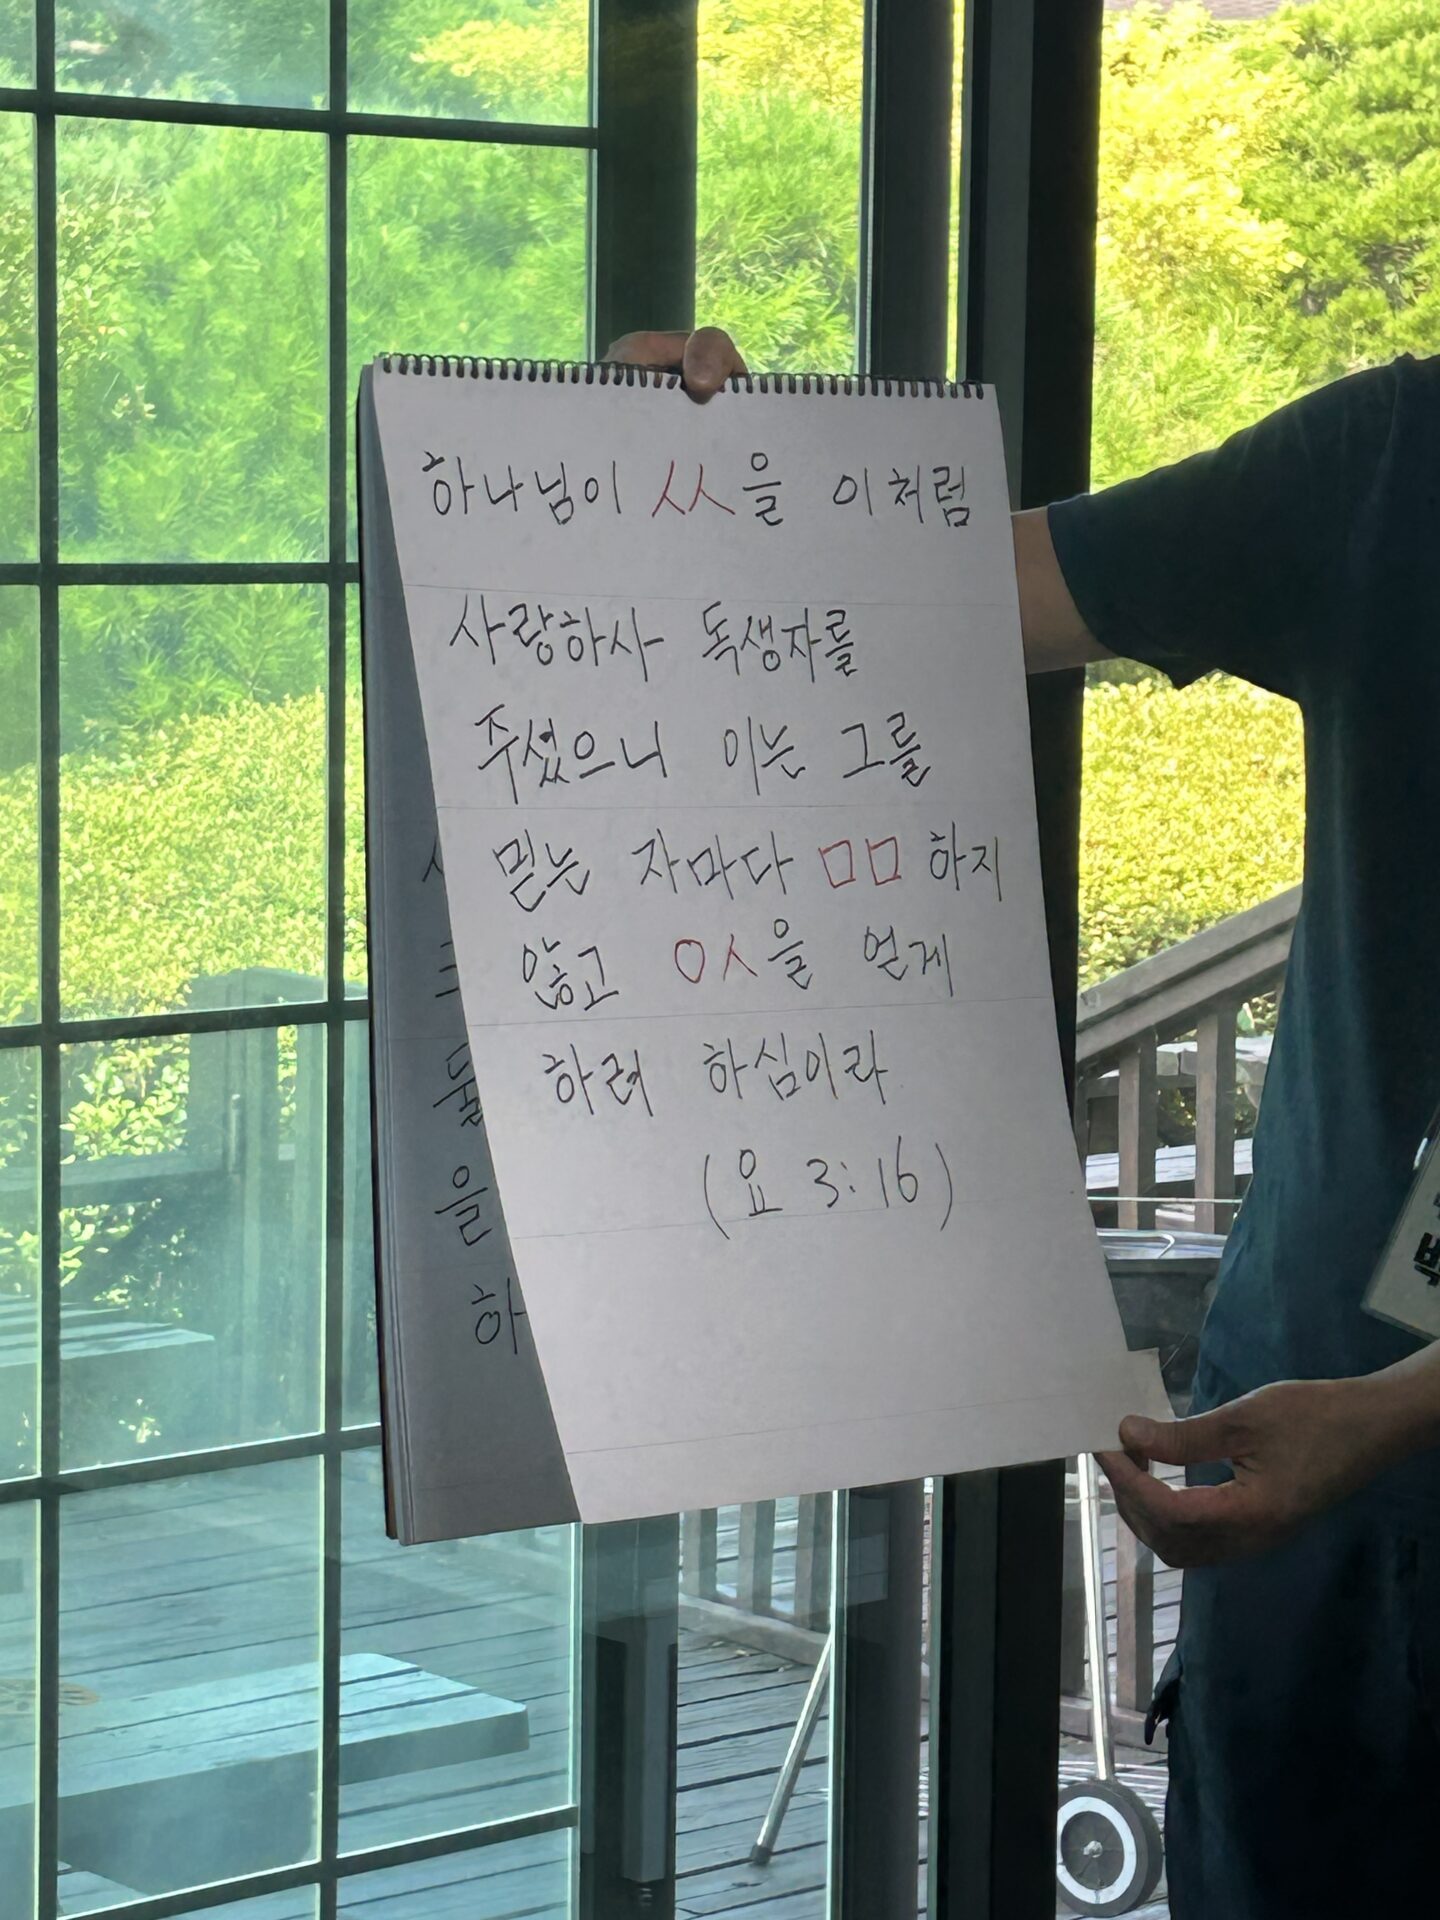 하나님이 ㅅㅅ을 이처럼
사랑하사 독생자를
주셨으니 이는 그를
믿는 자마다 ㅁㅁ하지
않고 ㅇㅅ을 얻게
하려 하심이라
(요 3:16)
을
하